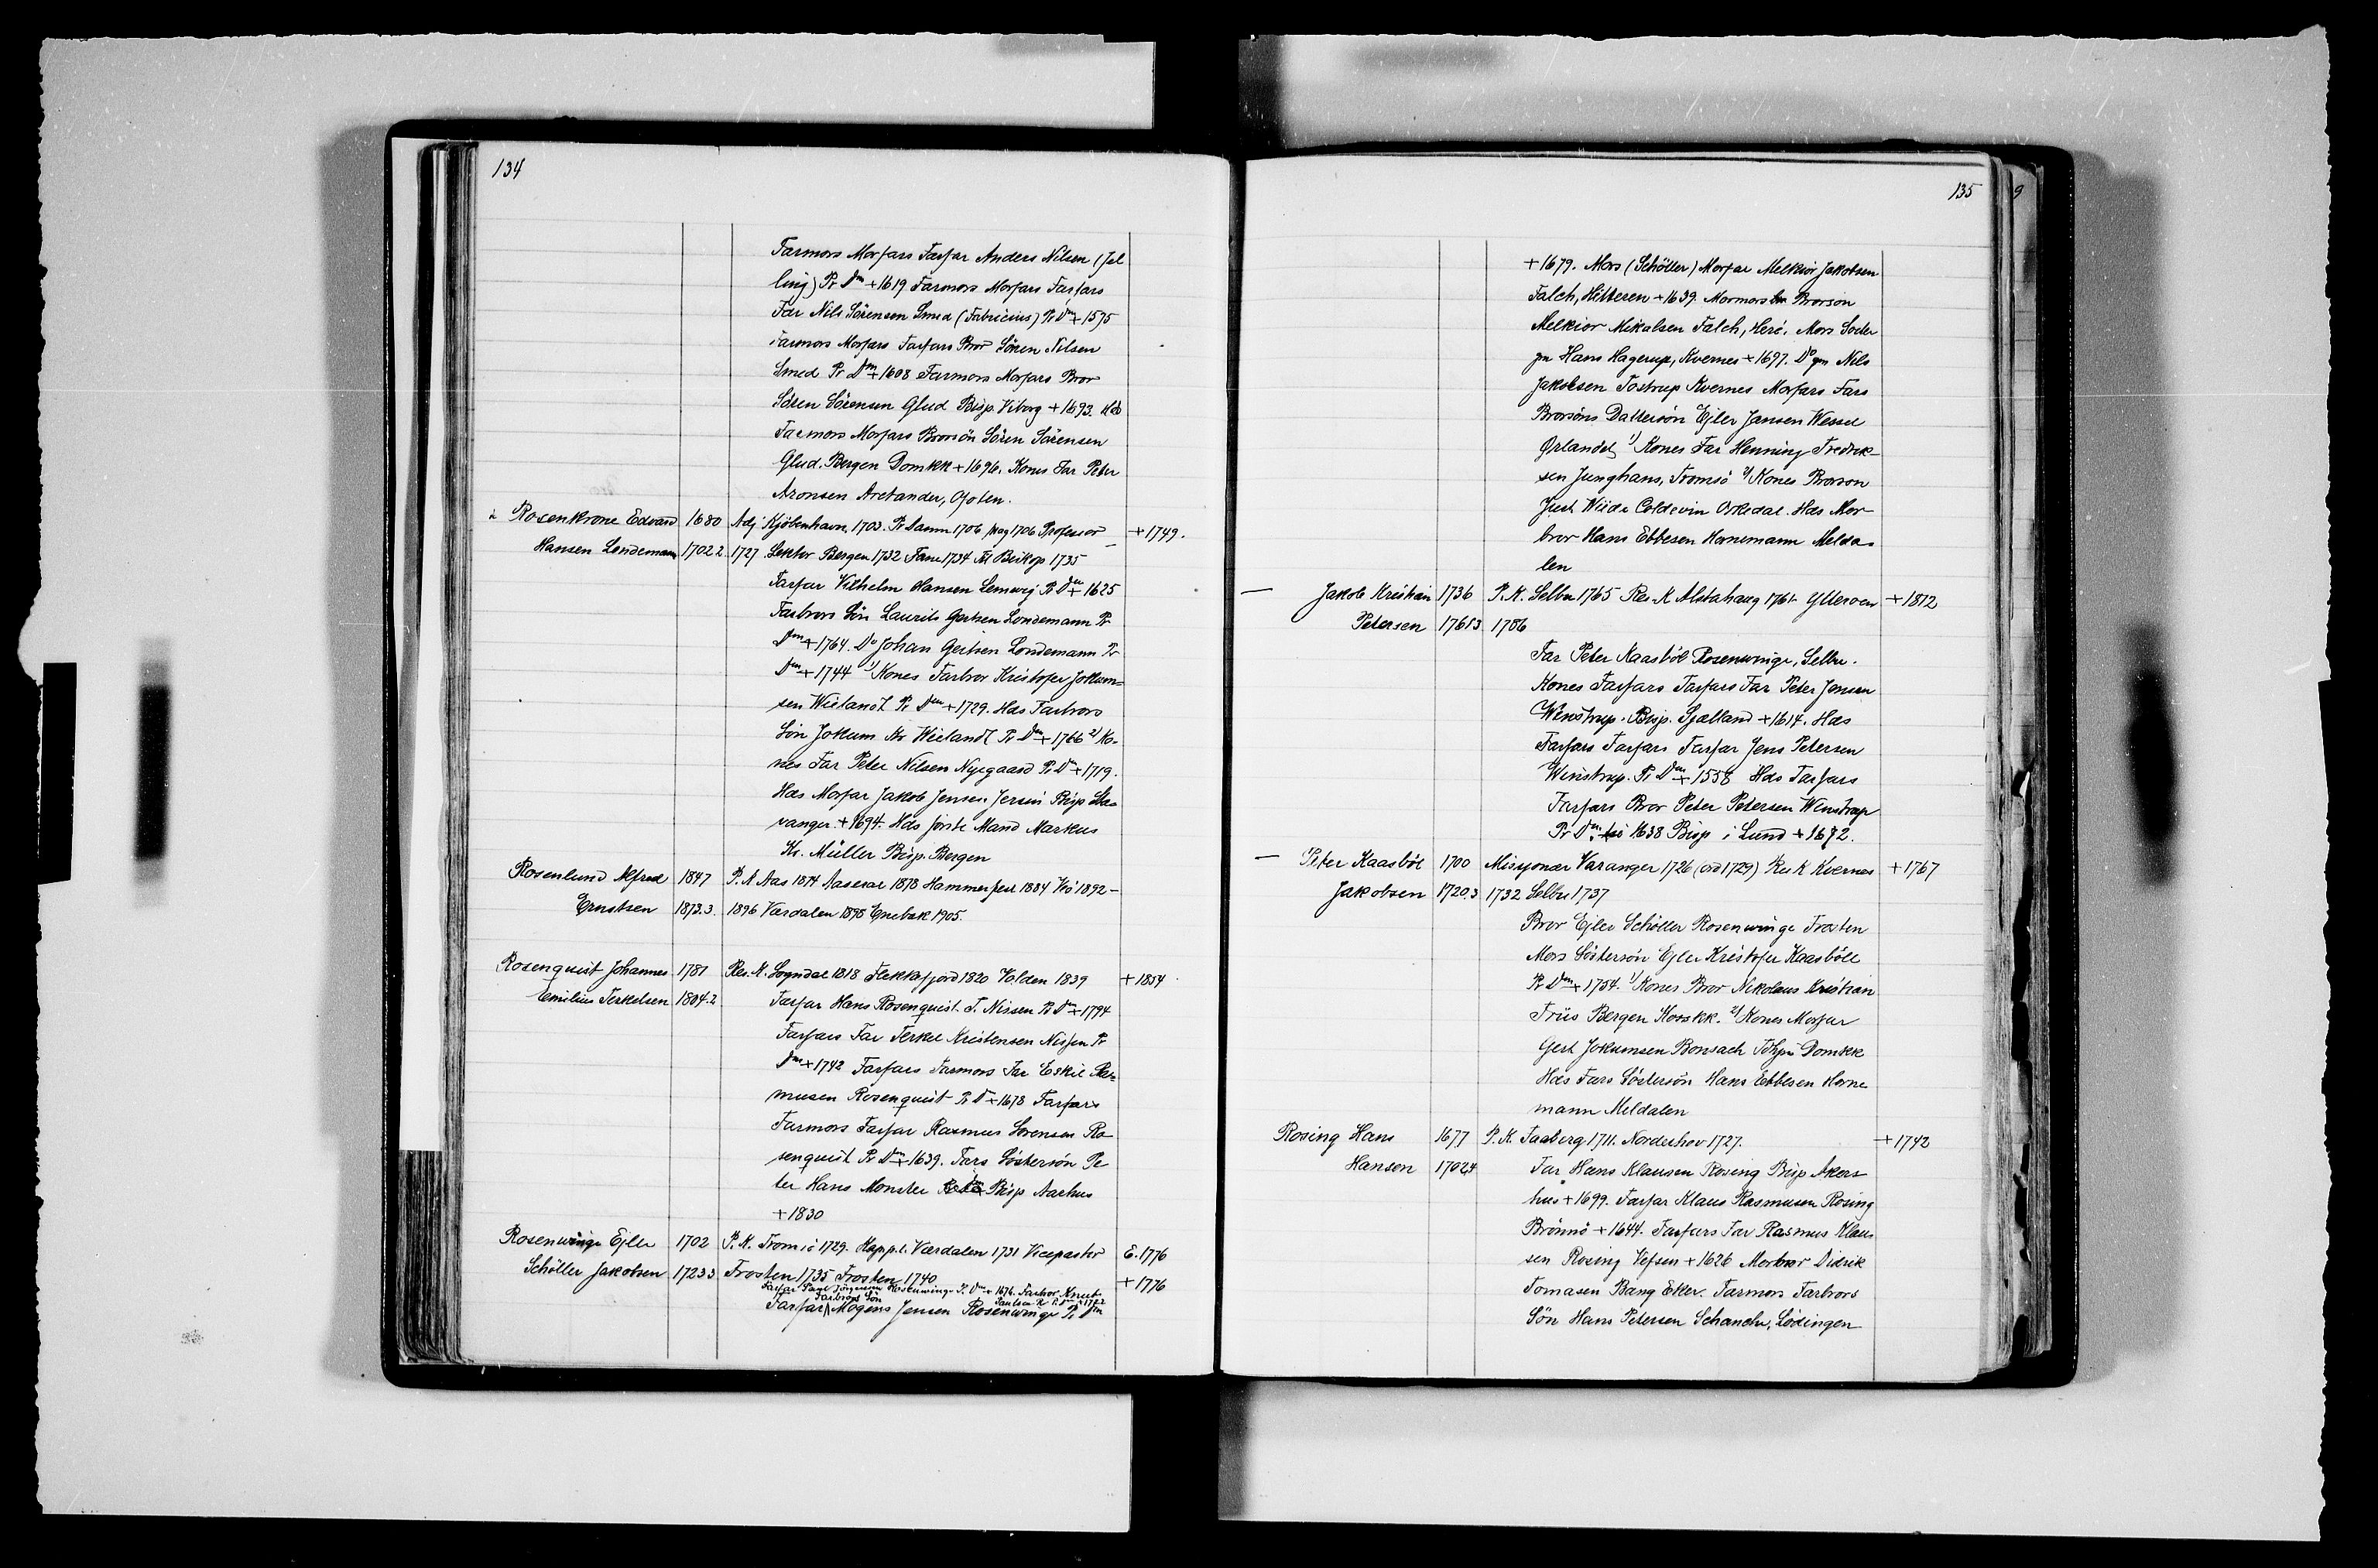 134
Farmors Morfars Farfar Anders Nilsen (Jel
ling) Pr Dm +1619 Farmors Morfars Farfars
Far Nils Sörensen Smed (Fabricius) Pr Dm +1575
Farmors Morfars Farfars Bror Sören Nilsen
Smed Pr Dm +1608 Farmors Morfars Bror
Sören Sörensen Glud Bisp. Viborg +1693. Hds
Farmors Morfars Brorsön Sören Sörensen
Glud. Bergen Domkk +1696. Kones Far Peter
Aronsen Arctander, Ofoten.
Rosenkrone Edvard 1680 Adj. Kjöbenhavn, 1703. Pr Danm 1706 Mag 1706 Professor +1749.
Hansen Londemann 1702 2. 1727 Lektor Bergen 1732 Fane 1734 Bisp 1735
Farfar Vilhelm Hansen Lemvig Pr Dm +1625
Farbrors Sön Laurits Gertsen Londemann Pr
Dm +1764. Do Johan Geitsen Londemann Pr
Dm +1744 1) Kones Farbror Kristofer Jokum=
sen Wielandt Pr Dm +1729. Hds Farbrors
Sön Jokum Kr Wielandt Pr Dm +1766 2) Ko-
nes Far Peter Nilsen Nygaard Pr Dm +1719.
Hds Morfar Jakob Jensen Jersin Bisp Sta=
vanger. +1694. Hds förste Mand Markus
Kr. Müller Bisp. Bergen
Rosenlund Alfred 1847 P. K Aas 1874 Aaseral 1878 Hammerfest 1884 1892-
Ernstsen 1873.3. 1896 Værdalen 1898 Enebak 1905.
Rosenquist Johannes 1781 Res. K. Sogndal 1818 Flekkefjord 1820 Volden 1839 +1854
Emilius Terkelsen 1804.2 Farfar Hans Rosenquist T. Nissen Pr Dm +1794
Farfars Far Terkel Kristensen Nissen Pr
Dm +1742 Farfars Farmors Far Eskil Ras=
musen Rosenquist Pr D +1678 Farfars
Farmors Farfar Rasmus Sörensen Ro
senquist Pr Dm +1639. Fars Söstersön Pe
ter Hans Monster Bisp Aarhus
+1830
Rosenwinge Ejler 1702 P. K. Tromsö 1729. Kap. p. l. Værdalen 1731 Vicepastor E. 1776
Schöller Jakobsen 1723 3 Frosten 1735 Frosten 1740 +1776
Farfar Povl Jörgensen Rosenwinge P. Dm +1676. Farbror Knut
Farbrors Sön Paulsen R Pr Dm +1722
Farfar Mogens Jensen Rosenwinge Pr Dm
135
9
+1679. Mors (Schöller) Morfar Melkior Jakobsen
Falch, Hitteren +1639. Mormors Brorson
Melkior Mikalsen Falch, Herö. Mors Söster
gm Hans Hagerup, Kvernes +1697. Do gm Nils
Jakobsen Tostrup Kvernes Morfars Fars
Brorsöns Dattersön Ejler Jansen Wessel
Örlandet 1) Kones Far Henning Fredrik=
sen Junghans, Tromsö 2) Kones Brorson
Just Wiide Coldevin Orkdal. Hds Mor-
bror Hans Ebbesen Hornemann Melda-
len
— Jakob Kristian 1736 P. K. Selbu 1765 Res. K Alstahaug 1761 Ytteröen +1812
Petersen 1761 3 1786
Far Peter Kaasböl Rosenwinge, Selbu.
Kones Farfars Farfars Far Peter Jensen
Winstrup. Bisp. Sjælland +1614. Hds
Farfars Farfars Farfar Jens Petersen
Winstrup. Pr Dm +1558 Hds Farfars
Farfars Bror Peter Petersen Winstrup
Pr Dm. 1638 Bisp i Lund +1672.
— Peter Kaasböl 1700 Missjonær Varanger 1726 (ord 1729) Res K Kvernes +1767
Jakobsen 1720.3 1732 Selbu 1737
Bror Ejler Schöller Rosenwinge Frosten
Mors Söstersön Ejler Kristofer Kaasböll
Pr Dm +1754. 1) Kones Bror Nikolaus Kristian
Friis Bergen Korskk. 2) Kones Morfar
Gert Jokumsen Bonsach Tdhjm Domkk
Hds Fars Söstersön Hans Ebbesen Horne
mann Meldalen
Rosing Hans 1677 P. K. Faaberg 1711. Norderhov 1727. +1742
Hansen 1702 4 Far Hans Klausen Rosing Bisp Akers
hus +1699. Farfar Klaus Rasmusen Rosing
Brönnö +1644. Farfars Far Rasmus Klau
sen Rosing Vefsen +1626 Morbror Didrik
Tomasen Bang Eker. Farmors Farbrors
Sön Hans Petersen Schanche, Lödingen